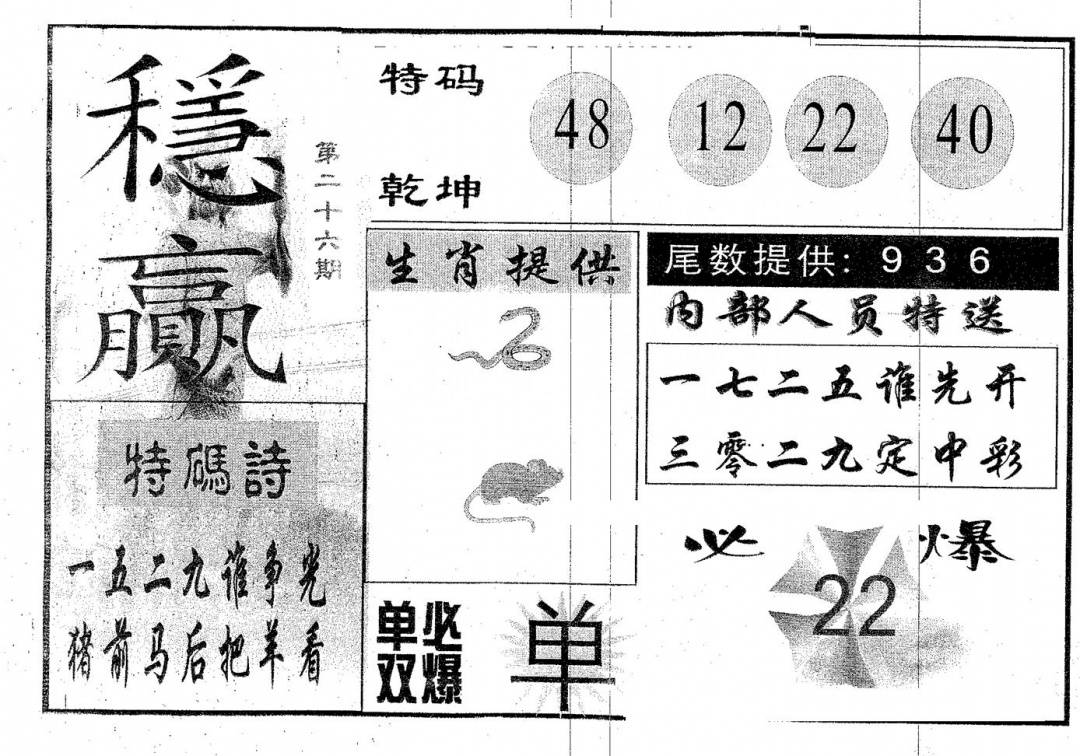 穩赢
第二十六期
特码 48 12 22 40
乾坤
生肖提供
尾数提供: 9 3 6
内部人员特送
一七二五谁先开
三零二九定中彩
特碼詩
一五二九谁争光
猪前马后把羊看
单必
双爆
单
必 22 爆